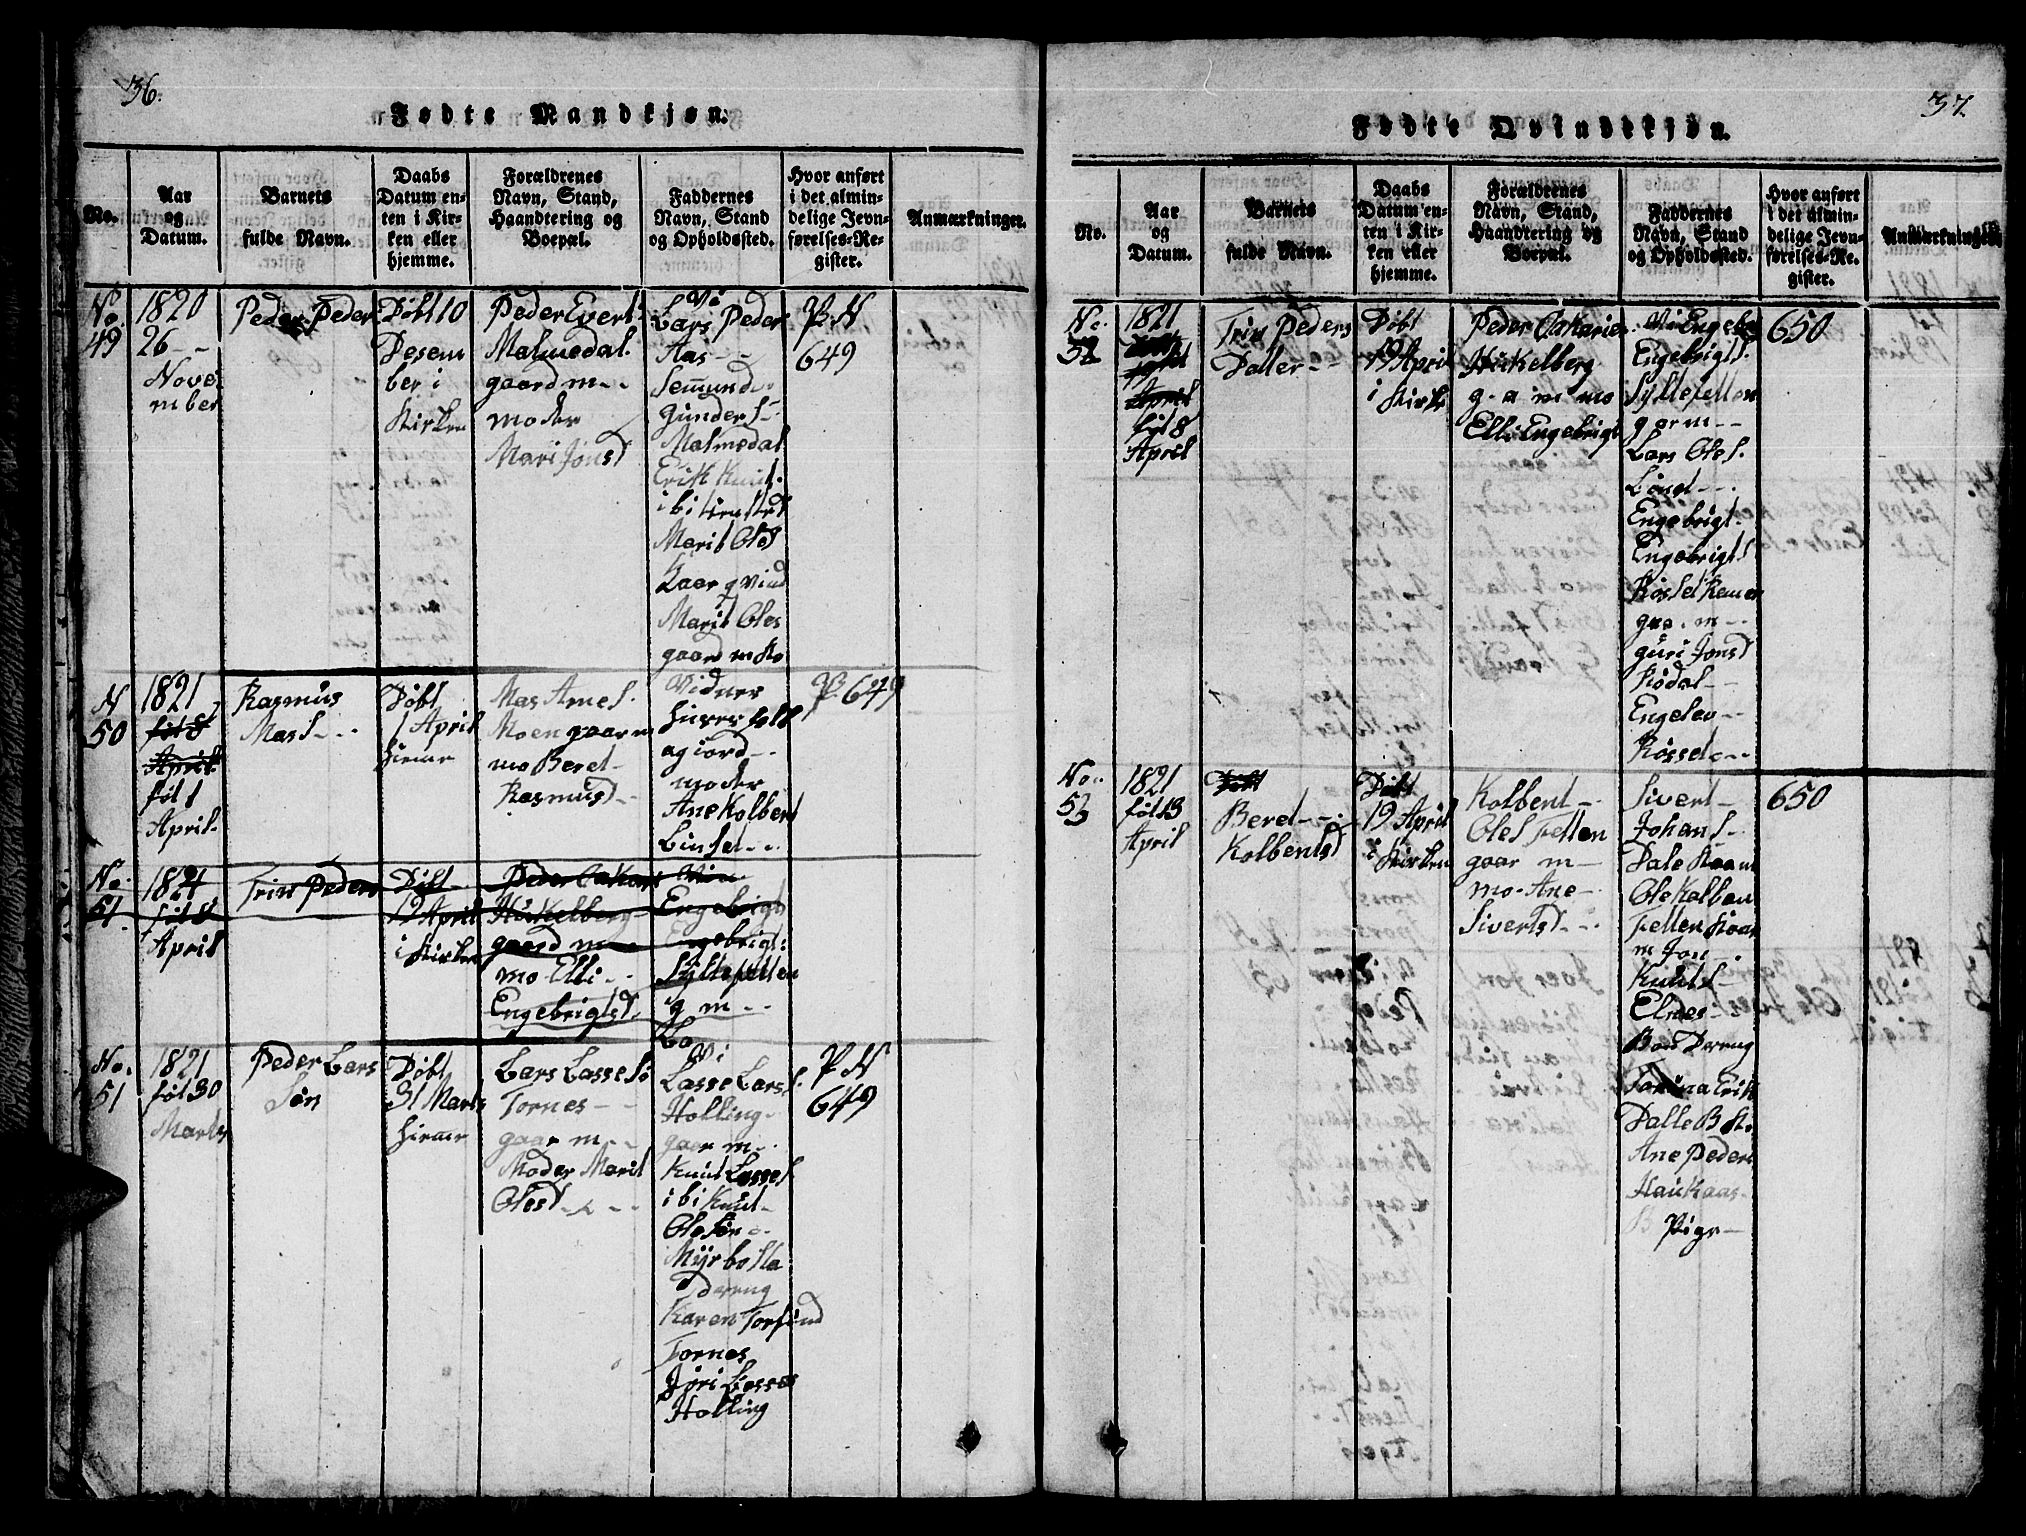 36.
Fødte Mandkjøn.
No.
Aar
og
Datum.
Barnets
fulde Navn.
Daabs
Datum en-
ten i Kir-
ken eller
hjemme.
Forældrenes
Navn, Stand,
Haandtering og
Boepæl.
Faddernes
Navn, Stand
og Opholdssted.
Hvor anført
i det almin-
delige Jevn-
førelses-Re-
gister.
Anmærkninger.
No
49
1820
26 - -
Nove
mber
Peder Peder
Døbt 10
Desem
ber i
Kirken
Peder Evert
Malmedal
gaard m - -
moder
Mari Jonsd
Vi
Lars Peder
Aas - -
Semund
Gunder S
Malmedal
Erik Knut
Marit Oles
Kaar qvind
Marit Oles
gaard m Ko
P N
649
N
50
1821
føt 8
April
føt 1
April.
Rasmus
Mas S - -
Døbt
1 April
hieme
Mas Arne S.
Moen gaar m
mo Beret
Rasmusd -
Vidner
huser folk
ag iord -
moder
Ane Kolbent
Linset - -
P. 649
No.
51
1821
føt 8
April
Trin Peders
Døbt
19 April
i Kirken
Peder Cakari
Hickelberg
gaard m
mo - Elli - -
Engebrigtsd.
Engebrigt
Engebrigt:
Syltefetten
g m - -
La
No.
51
1821
føt 30
Marts
Peder Lars
Søn
Døbt
31 Marts
hieme
Lars Lasse Sø
Tornes - -
gaar m - -
Moder Marit
Olesd - - -
Vi
Lasse Lars S.
Holling -
gaar m -
Knut Lasse S
i bi Knut -
Ole Søn -
Myrbosta
Dreng
Karen Torfind
Tornes
Jøri Lasses
Holling
P N
649
37
Fødte Qvindekjøn.
No.
Aar
og
Datum.
Barnets
fulde Navn.
Daabs
Datum en-
ten i Kir-
ken eller
hjemme.
Forældrenes
Navn, Stand,
Haandtering og
Boepæl.
Faddernes
Navn, Stand
og Opholdssted.
Hvor anført
i det almin-
delige Jevn-
førelses-Re-
gister.
Anmærkninger.
No.
52
1821
April
føt 8
April
Trin Peders
Datter - -
Døbt
19 April
i Kirke
Peder Cakarie
Hickelberg
g - a m mo
Elli Engebrigt
Vi Engebr
Engebrigt S.
Syltefetten
gar m - -
Lars Ole S.
Lønset - -
Engebrigt
Engebrigt S
gaa . m - -
guri Jonsd
Rødal - -
Engelev - -
Røsset - -
650
No.
53
1821
føt 13
April
Døbt
Beret - -
Kolbentsd
Døbt
19 April
i Kirken
Kolbent -
Ole S Fetten
gaar m -
mo - Ane -
Sivertsd - -
Sivert -
Johan S -
Dale Kaar m
Ole Kolben
Fetten Kaar
m Jon -
Knut S -
Elnes - -
Bon Dreng
Tomina Erik
Dalle B K.
Ane Peders
Haukaas -
B Pige -
650